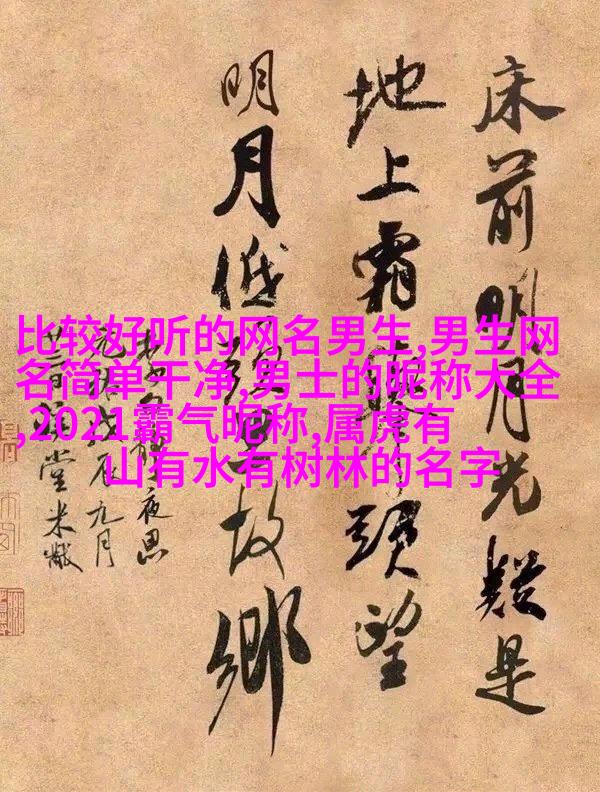 床前明月光疑是
地上霜舉頭望
明月低頭思故鄉
夜思
九月
堂米黻
比较好听的网名男生,男生网
名简单干净,男士的昵称大全
,2021霸气昵称,属虎有
山有水有树林的名字